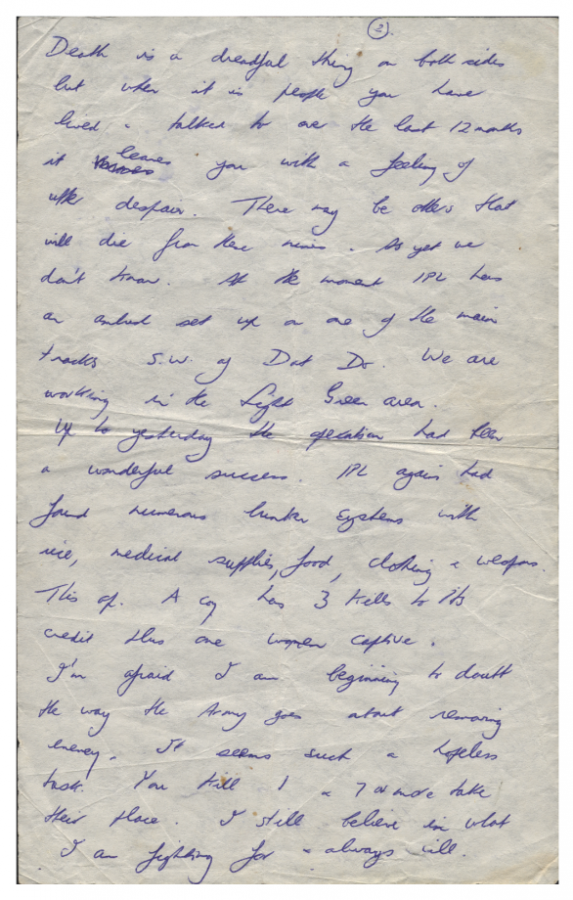 2.
Death is a dreadful thing on both sides
but when it is people you have
lived & talked to over the last 12 months
it leaves you with a feeling of
utter despair. There may be others that
will die from these mines. As yet we
don't know. At the moment 1PL has
an ambush set up on one of the main
tracks S.W. of Dat Do. We are
working in the Light Green area.
Up to yesterday the operation had been
a wonderful success. 1PL again had
found numerous bunker systems with
rice, medical supplies, food, clothing & weapons.
This op. A coy has 3 kills to its
credit plus one women captive.
I'm afraid I am beginning to doubt
the way the Army goes about removing
enemy. It seems such a hopeless
task. You kill 1 & 7 or more take
their place. I still believe in what
I am fighting for & always will.